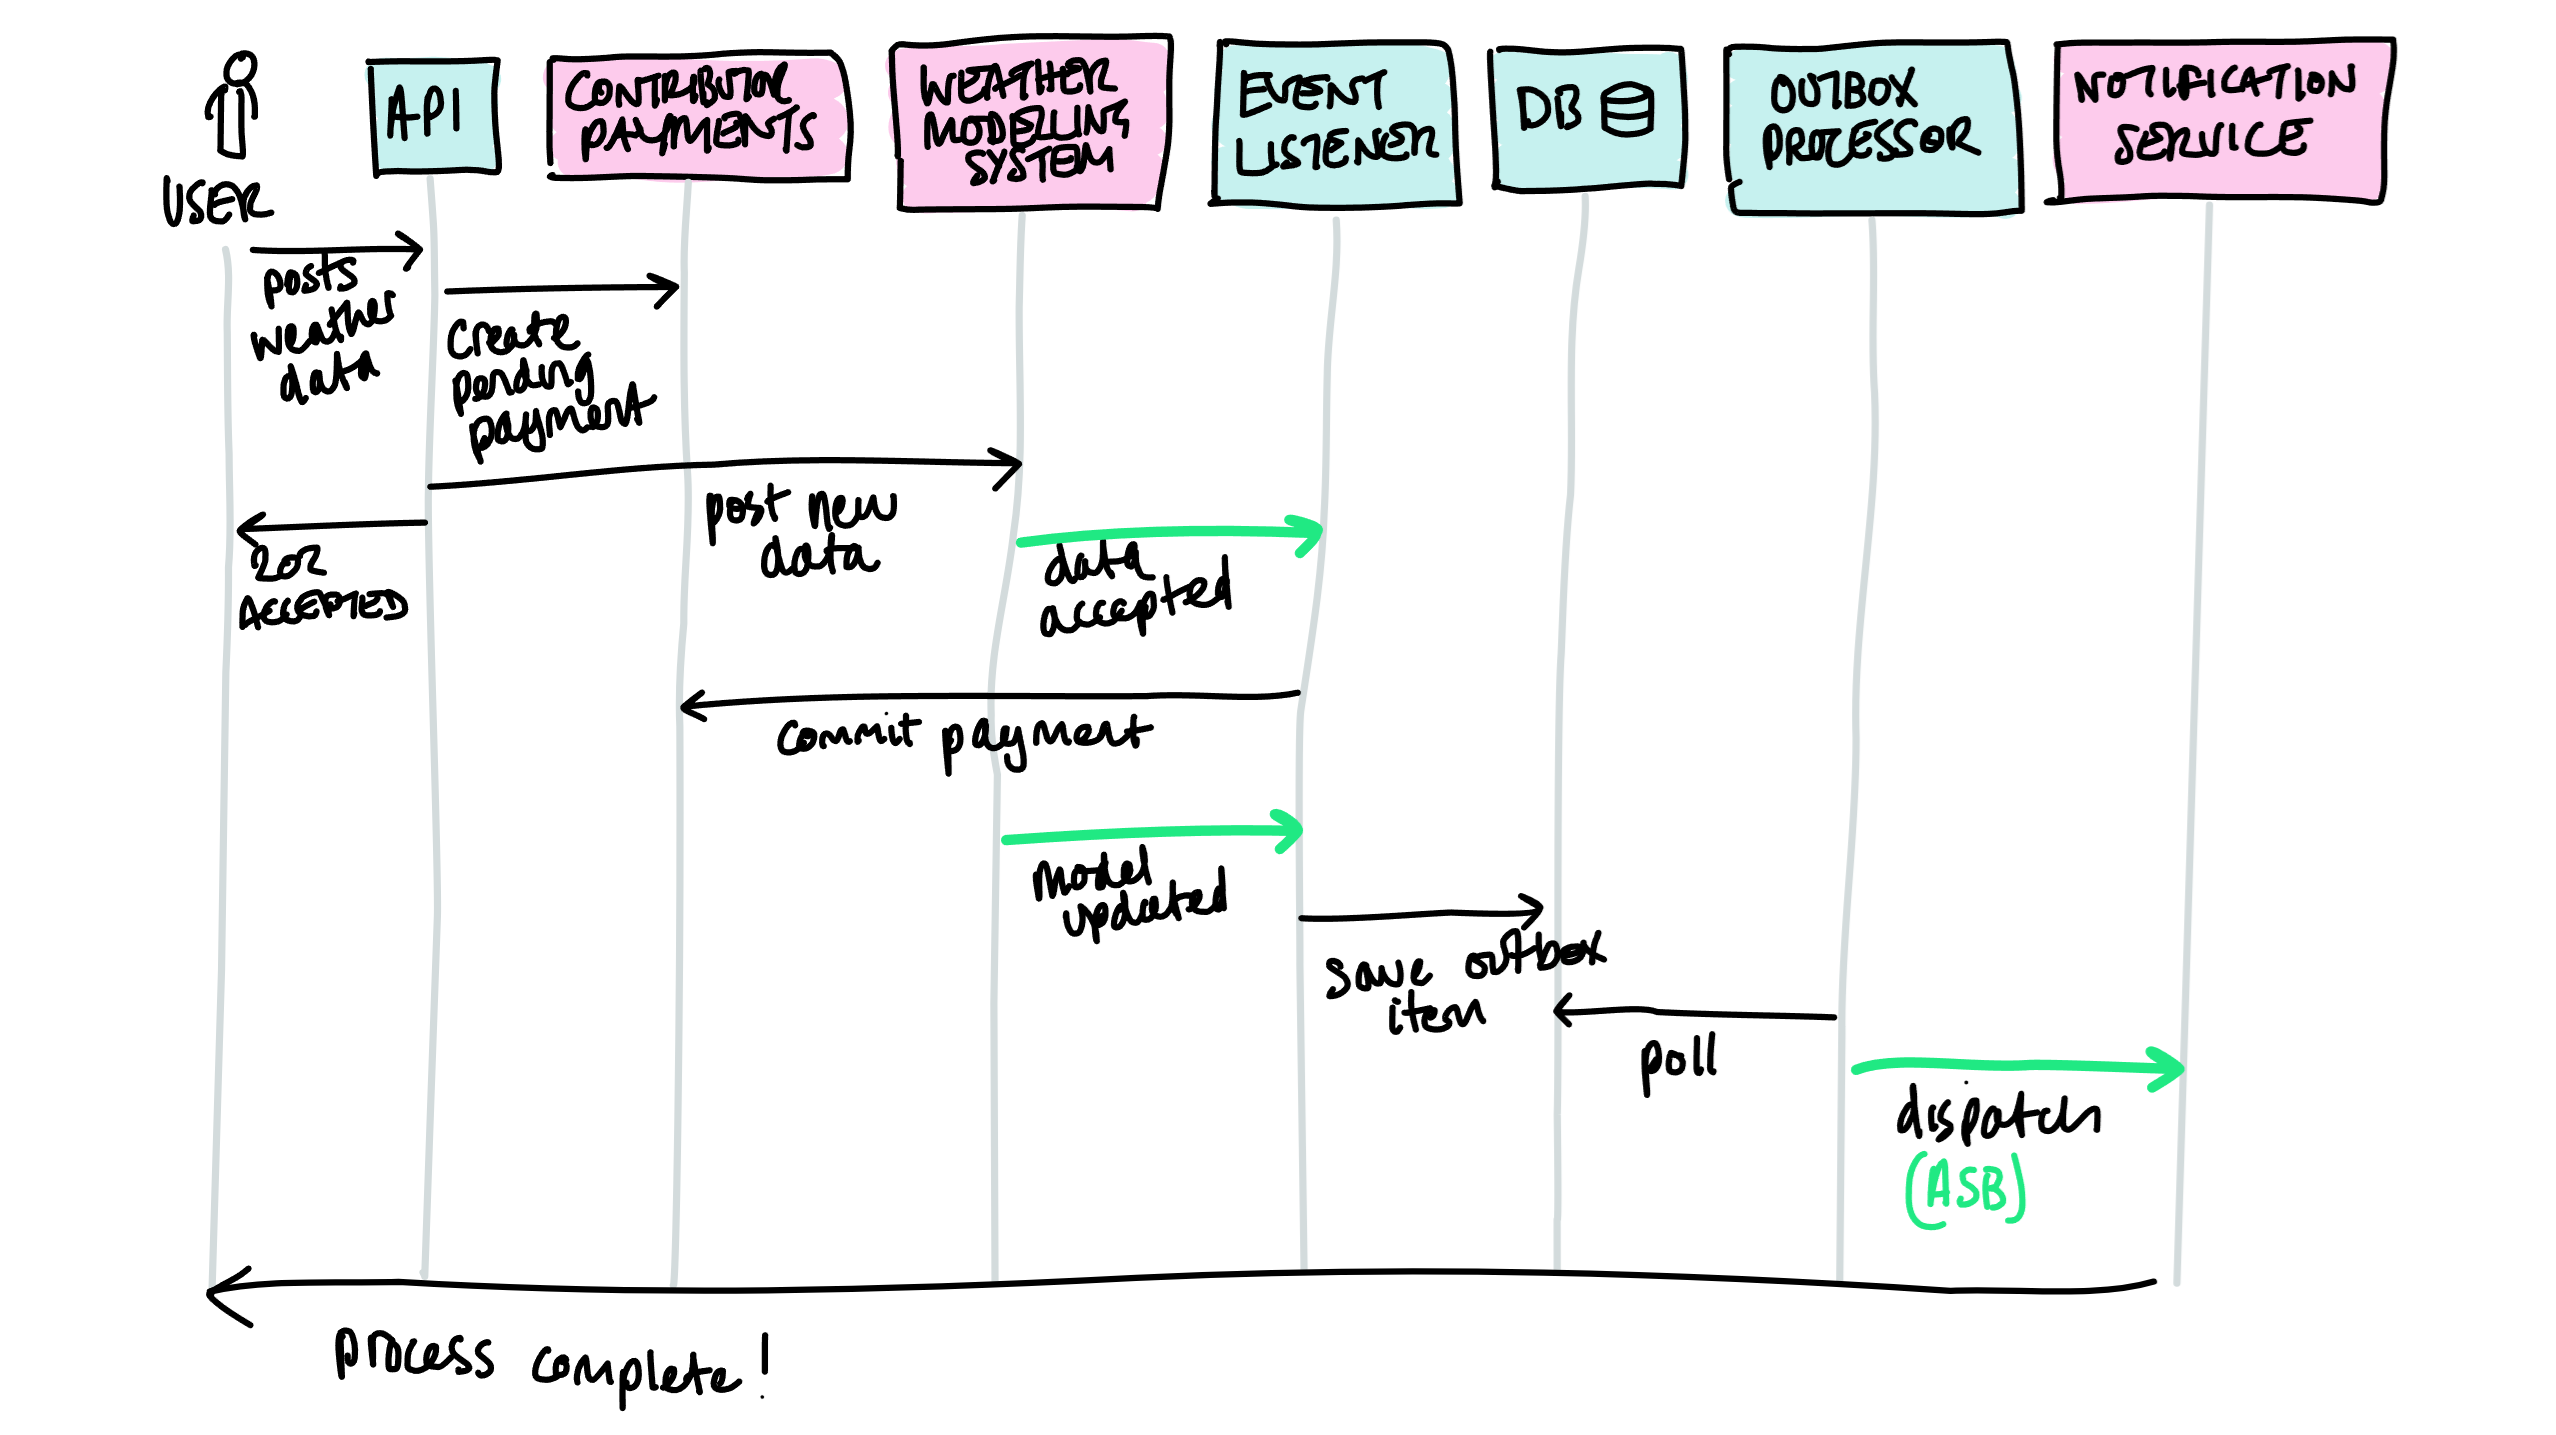 USER
API
CONTRIBUTOR
PAYMENTS
WEATHER
MODELLING
SYSTEM
EVENT
LISTENER
DB
OUTBOX
PROCESSOR
NOTIFICATION
SERVICE
posts
weather
data
create
pending
payment
post new
data
202
ACCEPTED
data
accepted
commit payment
model
updated
save outbox
item
poll
dispatch
(ASB)
process complete!